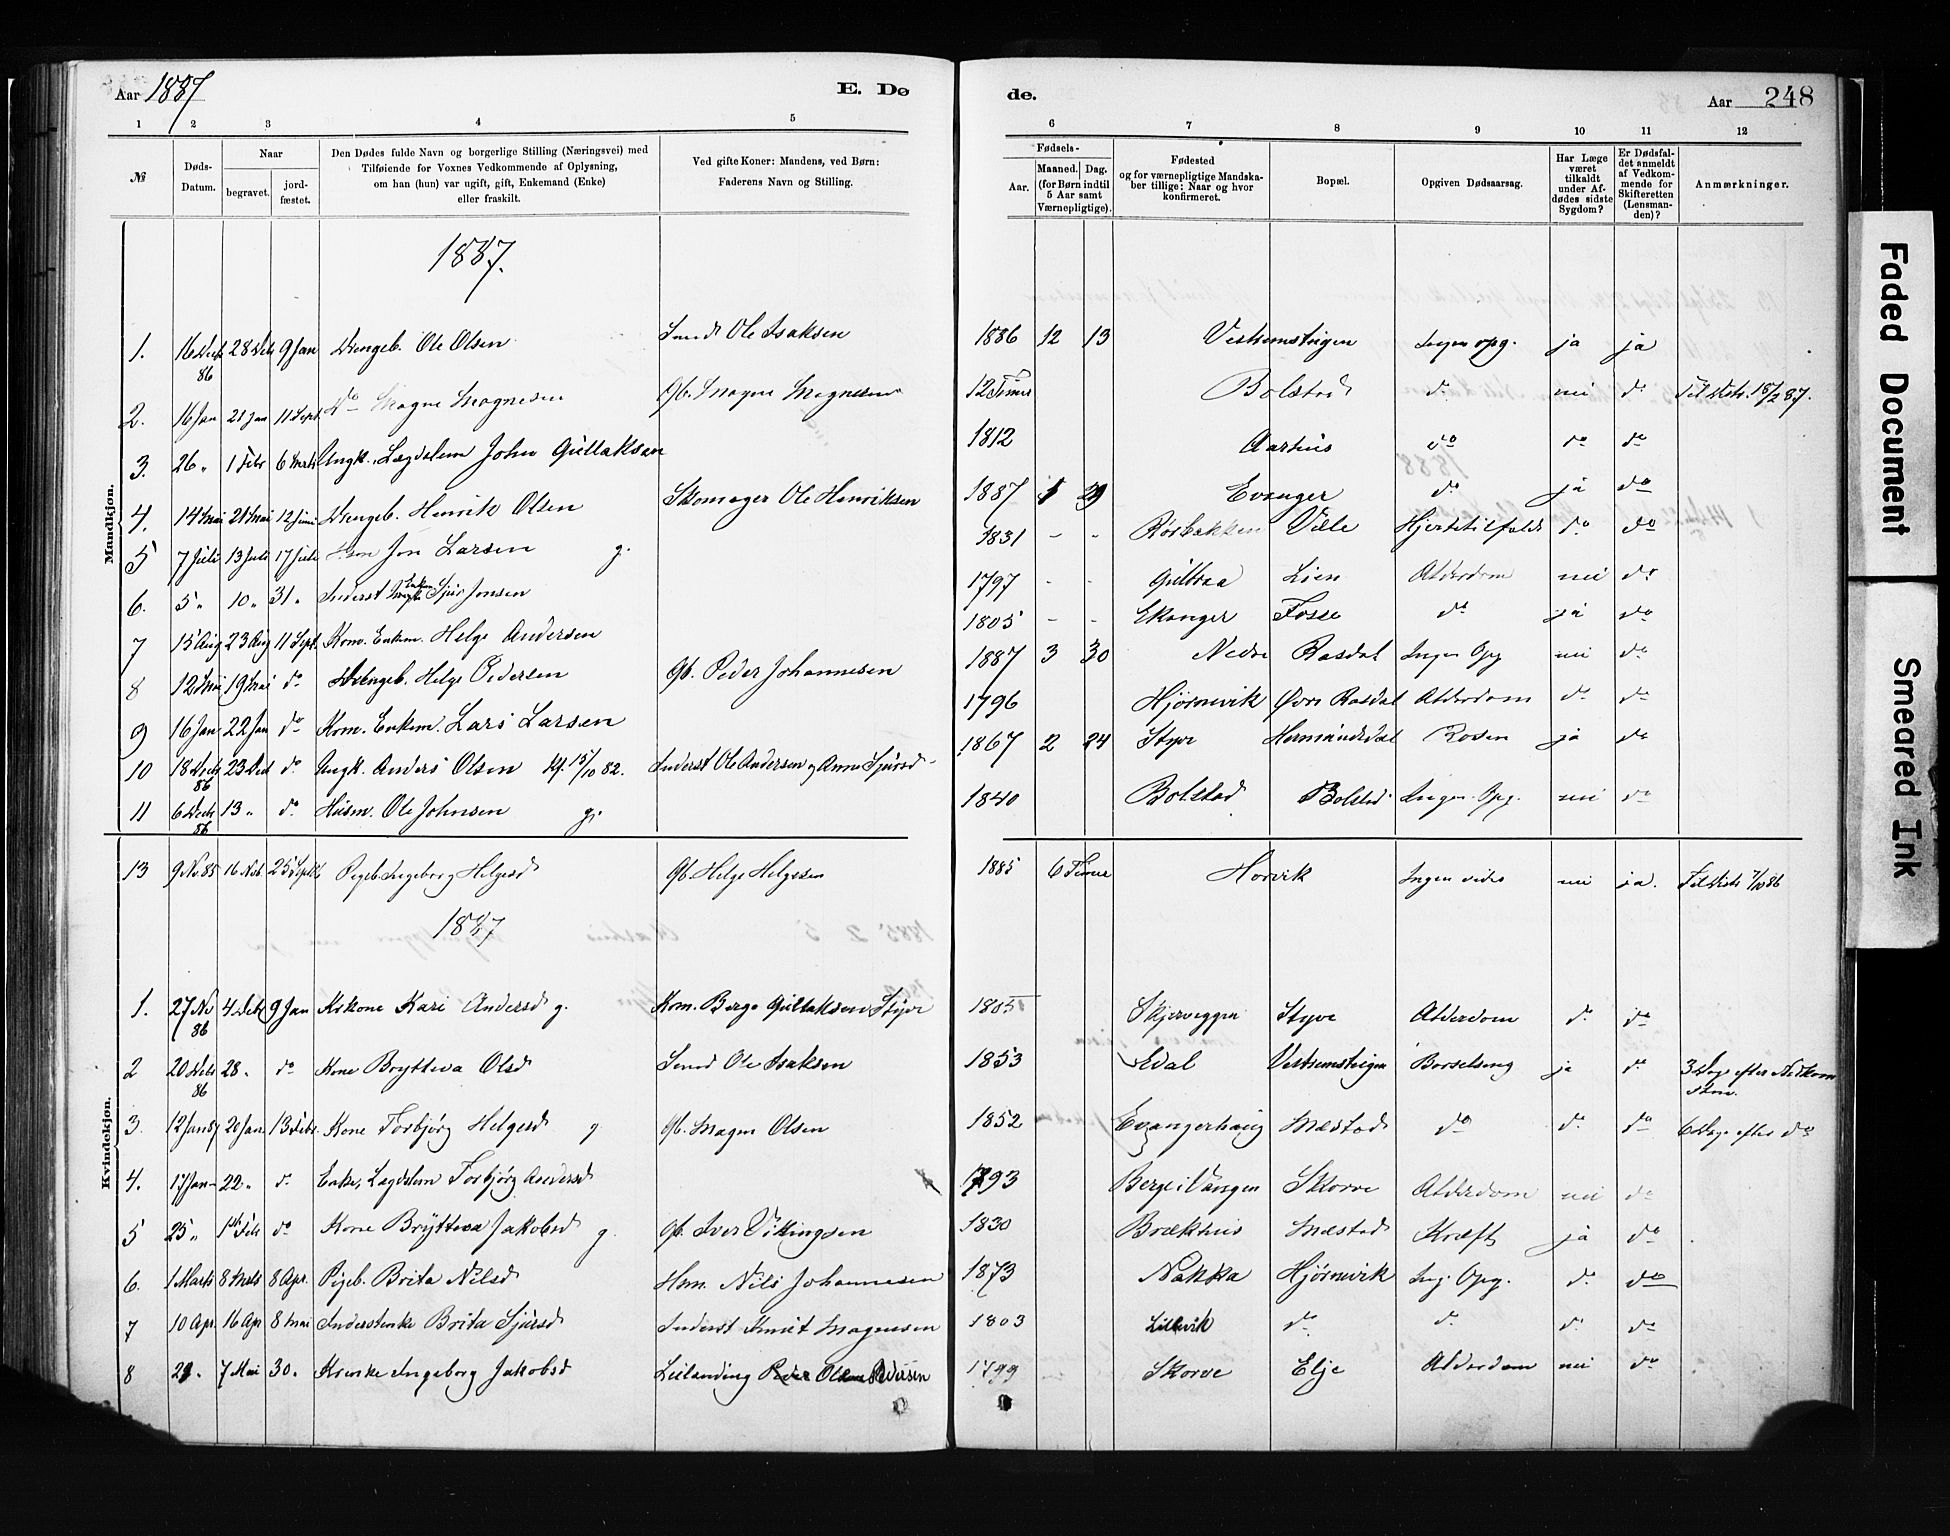 Aar 1887 E. Dø de. Aar 248
1 2 3 4 5 6 7 8 9 10 11 12
№ Døds-Datum. Naar begravet. jord-fæstet. Den Dødes fulde Navn og borgerlige Stilling (Næringsvei) med Tilføiende for Voxnes Vedkommende af Oplysning, om han (hun) var ugift, gift, Enkemand (Enke) eller fraskilt. Ved gifte Koner: Mandens, ved Børn: Faderens Navn og Stilling. Fødsels- Aar. Maaned. Dag. (for Børn indtil 5 Aar samt Værnepligtige). Fødested og for værnepligtige Mandskaber tillige: Naar og hvor konfirmeret. Bopæl. Opgiven Dødsaarsag. Har Læge været tilkaldt under Afdødes sidste Sygdom? Er Dødsfaldet anmeldt af Vedkommende for Skifteretten (Lensmanden)? Anmærkninger.
Mandkjøn.
1887.
1. 16 Decb 86 28 Deb 9 Jan Drengeb. Ole Olsen Smed Ole Isaksen 1886 12 13 Vestremsteigen Ingen opg. ja ja
2. 16 Jan 21 Jan 11 Sept. do Magne Magnesen Gb. Magne Magnesen 12 Timer Bolstad do nei do Til Distr. 18/2 87.
3. 26 " 1 Febr 6 Marts Ungk., Lægdslem John Gullaksen 1812 Aarhus do do do
4. 14 Mai 21 Mai 12 Juni Drengeb. Henrik Olsen Skomager Ole Henriksen 1887 1 29 Evanger do ja do
5 7 Juli 13 Juli 17 Juli Hsm Jon Larsen g. 1831 - - Røsbakken Væle Hjertetilfælde do do
6. 5 " 10 " 31 " Inderst Enkem Sjur Jonsen 1797 - - Gullraa Lien Alderdom nei do
7 15 Aug 23 Aug 11 Sept. Kom. Enkem. Helge Andersen 1805 - - Ekanger Fosse do ja do
8 12 Mai 19 Mai do Drengeb. Helge Pedersen Gb. Peder Johannesen 1887 3 30 Nedre Rasdal Ingen Opg nei do
9 16 Jan 22 Jan do Kom. Enkem. Lars Larsen 1796 Hjørnevik Øvre Rasdal Alderdom do do
10 18 Decb 86 23 Decb do Ungk. Anders Olsen kf. 15/10 82. Inderst Ole Andersen og Anna Sjursd 1867 2 24 Styve Hermundsdal Rosen ja do
11 6 Decb 86 13 " do Husm. Ole Johnsen g. 1840 Bolstad Bolstad Ingen Opg. nei do
Kvindekjøn.
13 9 Nv. 85 16 Nvb. 25 Septb Pigeb. Ingeborg Helgesd Gb. Helge Helgesen 1885 6 Timer Horvik Ingen vides nei ja. Til Distr 7/10 86
1887
1. 27 Nv 86 4 Debr 9 Jan Kskone Kari Andersd g. Kom. Berge Gullaksen Styve 1805 Skjerveggen Styve Alderdom do do
2 20 Debr 86 28 " do Kone Brytteva Olsd Smed Ole Isaksen 1853 Edal Vestremsteigen Barselseng ja do 3 Dage efter Nedkomsten.
3. 12 Jan 87 20 Jan. 13 Febr. Kone Torbjørg Helgesd g Gb. Magne Olsen 1852 Evangerhaug Mæstad do do do 6 Dage efter do
4. 17 Jan 22 " do Enke, Lægdslem Torbjørg Andersd 1793 Berge i Vangen Skorve Alderdom nei do
5 25 " 1 Febr do Kone Brytteva Jakobsd g. Gb. Iver Vikingsen 1830 Brækhus Mæstad Kræft ja do
6. 1 Marts 8 Mrts 8 Apr. Pigeb. Brita Nilsd Hsm. Nils Johannesen 1873 Nakka Hjørnevik Ing. Opg. do do
7 10 Apr. 16 Apr 8 Mai Inderstenke Brita Sjursd Inderst Knut Magnesen 1803 Lillevik do do do do
8 29 " 7 Mai 30 " Kaarenke Ingeborg Jakobsd Leilænding Peder Olsen Pedersen 1799 Skorve Elje Alderdom nei do
Faded Document
Smeared Ink